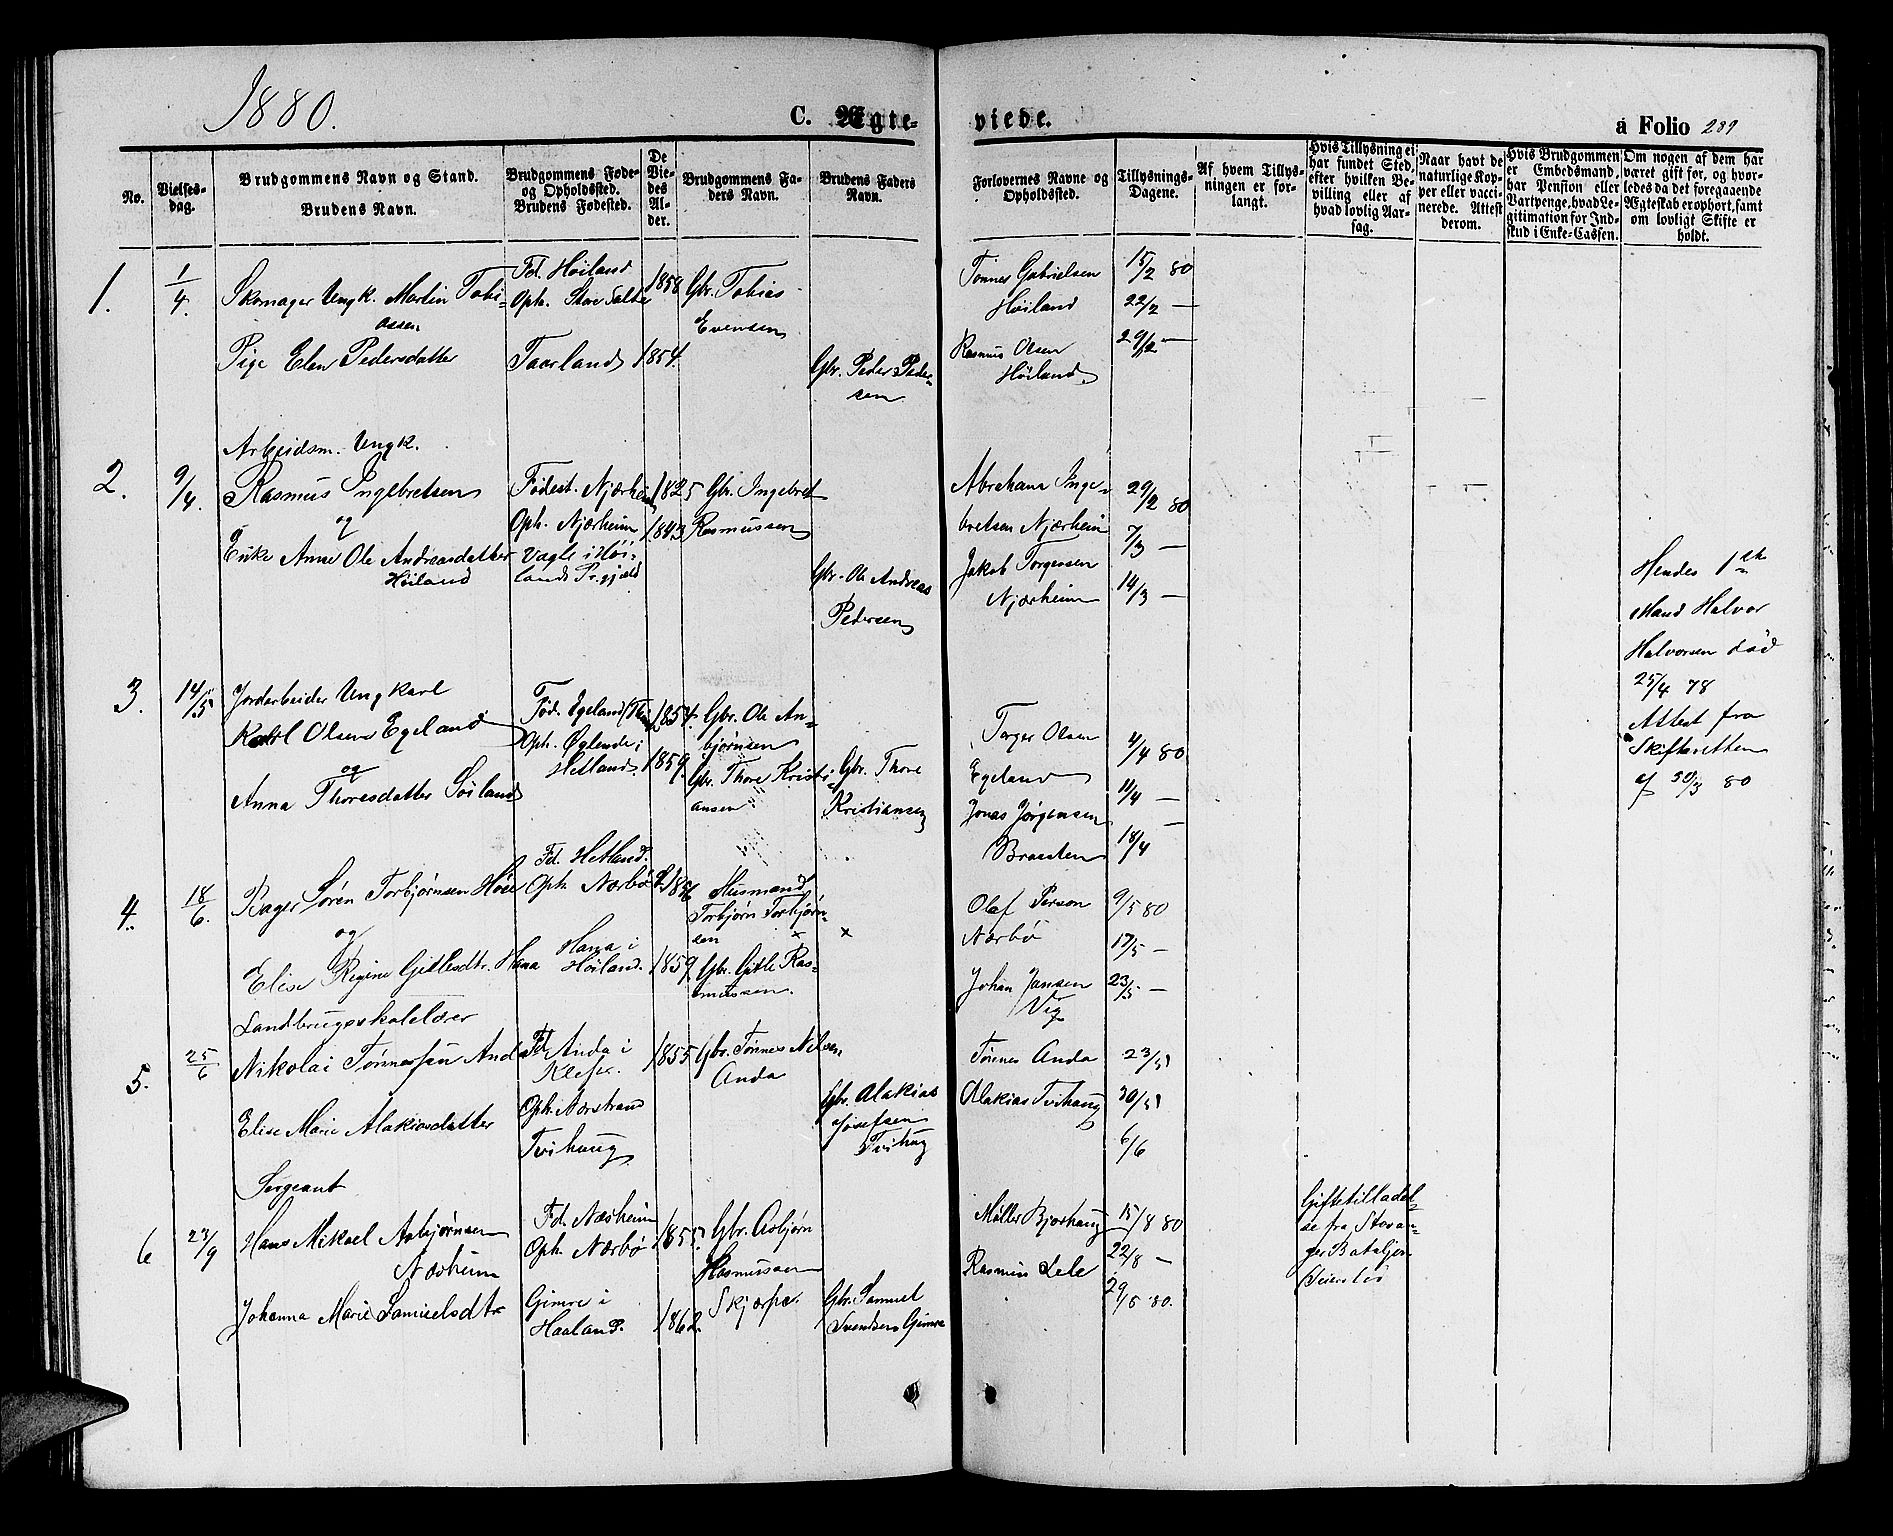 1880.
C. Ægte-
viede.
a Folio 289
No.
Vielses-
dag.
Brudgommens Navn og Stand.
Brudens Navn.
Brudgommens Føde-
og Opholdssted.
Brudens Fødested.
De
Vie-
des
Al-
der.
Brudgommens Fa-
ders Navn.
Brudens Faders
Navn.
Forlovernes Navne og
Opholdssted.
Tillysnings-
Dagene.
Af hvem Tillys-
ningen er for-
langt.
Hvis Tillysning ei
har fundet Sted,
efter hvilken Be-
villing eller af
hvad lovlig Aar-
sag.
Naar havt de
naturlige Kop-
per eller vacci-
nerede. Attest
derom.
Hvis Brudgommen
er Embedsmand,
har Pension eller
Vartpenge, hvad Le-
gitimation for Ind-
skud i Enke-Cassen.
Om nogen af dem har
været gift før, og hvor-
ledes da det foregaaende
Ægteskab er ophørt, samt
om lovligt Skifte er
holdt.
1.
1/4.
Skomager Ungk. Martin Tobi-
assen
Pige Elen Pedersdatter
Fd. Høiland
Oph. Store
Taarland
1858
1854.
Gbr. Tobias
Evensen
Gbr. Peder Peder-
sen
Tønnes Gabrielsen
Høiland
Rasmus Olsen
Høiland
15/2 80
22/2 —
29/2 —
2.
9/4.
Arbeidsm. Ungk.
Rasmus Ingebretsen
og
Enke Anne Ole Andreasdatter
Høiland
Fødest. Njærheim
Oph. Njærheim
Vagle i Høi-
lands Pr.gjæld
1825
1843
Gbr. Ingebret
Rasmussen
Gbr. Ole Andreas
Pedersen
Abraham Inge-
bretsen Njærheim
Jakob Torgersen
Njærheim
29/2 80
7/3 —
14/3 —
Hendes 1ste
Mand Halvor
Halvorsen død
25/4 78
Attest fra
Skifteretten
af 30/3 80
3.
14/5
Jordarbeider Ungkarl
Karl Olsen Egeland
og
Anna Thoresdatter Söiland
Fød. Egeland
Oph. Øglende i
Hetland.
1854.
1859.
Gbr. Ole An-
bjørnsen
Gbr. Thore Kristi-
ansen
Gbr. Thore
Kristiansen
Torger Olsen
Egeland
Jonas Jörgensen
Braaten
4/4 80
11/4 —
18/4 —
4.
18/6.
Bager Søren Torbjørnsen Höie
og
Elise Regine Gitlesdtr. Hana
Fd. Hetland.
Oph. Nærbø
Hana i
Høiland.
1856
1859
Husmand
Torbjørn Torbjørn-
sen x
x
Gbr. Gitle Ras-
mussen.
Olaf Person
Nærbø
Johan Jansen
Vig
9/5 80
17/5 —
23/5 —
5.
25/6
Landbrugsskolelærer
Nikolai Tønnesen Anda
Elise Marie Alakiasdatter
Fd. Anda i
Klepe.
Oph. Nærstrand
Tvihaug
1855
Gbr. Tønnes Nilsen
Anda
Gbr. Alakias
Josefsen
Tvihaug
Tønnes Anda
Alakias Tvihaug
23/5
30/5
6/6
6
23/9
Sergeant
Hans Mikael Asbjørnsen
Næsheim
Johanna Marie Samuelsdtr
Fd. Næsheim
Oph. Nærbø
Gimre i
Haaland.
1855
1862.
Gbr. Asbjørn
Rasmussen
Skjærpe.
Gbr. Samuel
Svendsen Gimre
Møller Bjorhaug
Rasmus Lele
15/8 80
22/8 —
29/8 80.
Giftetilladel-
se fra Stavan-
ger Bataljon